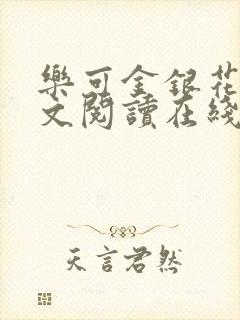 樂可金銀花
文閱讀在綫
天言君然